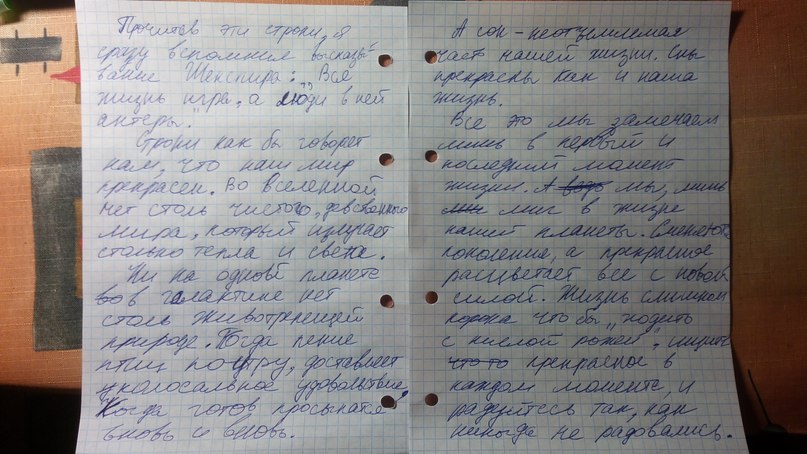 Прочитав эти строки, я
сразу вспомнил высказы-
вание Шекспира: "Вся
жизнь игра, а люди в ней
актеры."
Строки как бы говорят
нам, что наш мир
прекрасен. Во вселенной
нет столь чистого, девственного
мира, который излучает
столько тепла и света.
Ни на одной планете
в галактике нет
столь животрепещей
природы. Когда пение
птиц поутру, доставляет
колосальное удовольствие.
Когда готов просыпатся
вновь и вновь.
А сон - неотъемлемая
часть нашей жизни. Сны
прекрасны как и наша
жизнь.
Все это мы замечаем
лишь в первый и
последний момент
жизни. А ведь мы, лишь
миг в жизне
нашей планеты. Сменяются
поколение, а прекрасное
расцветает все с новой
силой. Жизнь слишком
корока что бы "ходить
с кислой рожей", ищите
что то прекрасное в
каждом моменте, и
радуйтесь так, как
никогда не радовались.